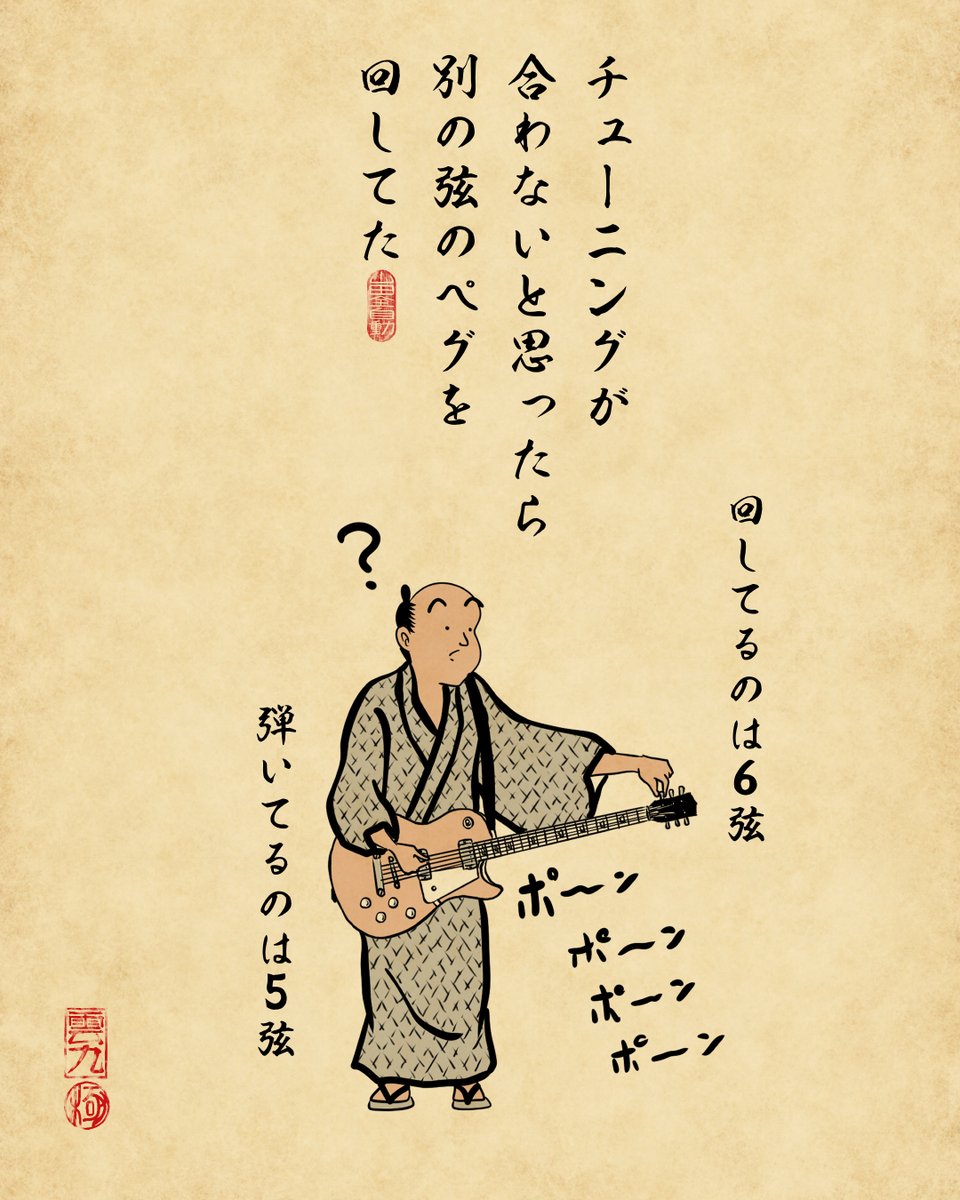 チューニングが
合わないと思ったら
別の弦のペグを
回してた
回してるのは6弦
?
弾いてるのは5弦
ポーン
ポーン
ポーン
ポーン